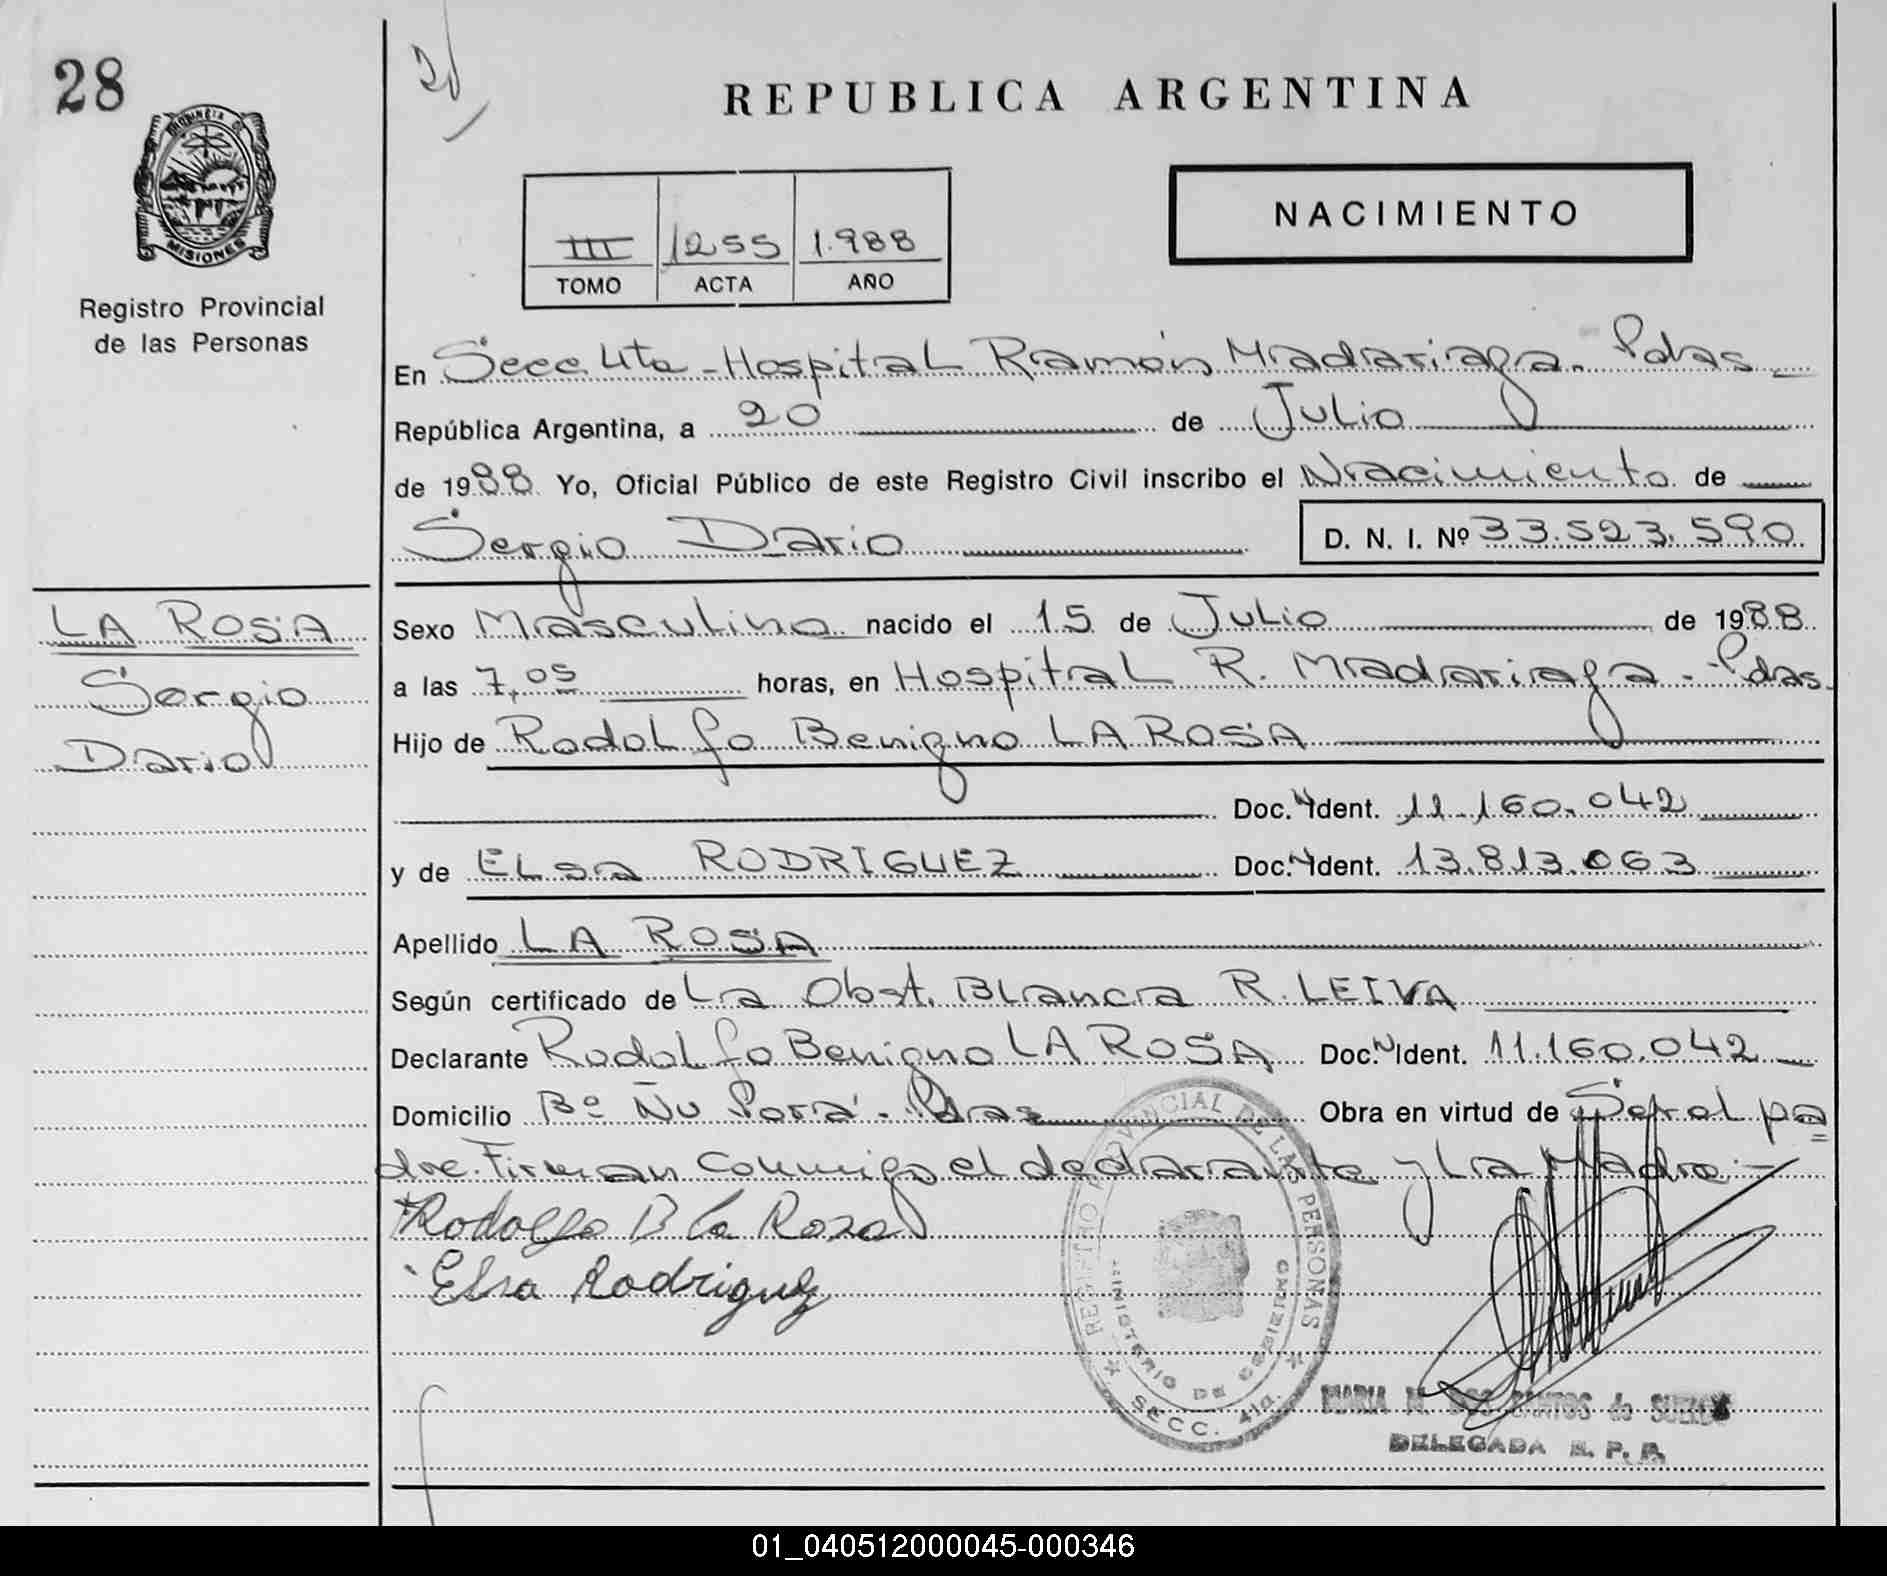 28
REPUBLICA ARGENTINA
PROVINCIA DE
MISIONES
Registro Provincial
de las Personas
III 1255 1.988
TOMO ACTA AÑO
NACIMIENTO
En Secc 4ta - Hospital Ramón Madariaga. Pdas
República Argentina, a 20 de Julio
de 1988 Yo, Oficial Público de este Registro Civil inscribo el Nacimiento de
Sergio Dario D. N. I. Nº 33.523.590
LA ROSA
Sergio
Dario
Sexo Masculino nacido el 15 de Julio de 1988
a las 7,05 horas, en Hospital R. Madariaga - Pdas.
Hijo de Rodolfo Benigno LA ROSA
Doc. N Ident. 11.160.042
y de ELsa RODRIGUEZ Doc. N Ident. 13.813.063
Apellido LA ROSA
Según certificado de La Obst. Blanca R. LEIVA
Declarante Rodolfo Benigno LA ROSA Doc. N Ident. 11.160.042
Domicilio Bº Ñu Porá - Pdas Obra en virtud de Ser el pa
dre. Firman Conmigo el declarante y La Madre.-
Rodolfo B la Rosa
Elsa Rodriguez
REGISTRO PROVINCIAL DE LAS PERSONAS
MINISTERIO DE GOBIERNO
SECC. 4ta.
MARIA M. DOS SANTOS de
DELEGADA R. P. P.
01_040512000045-000346